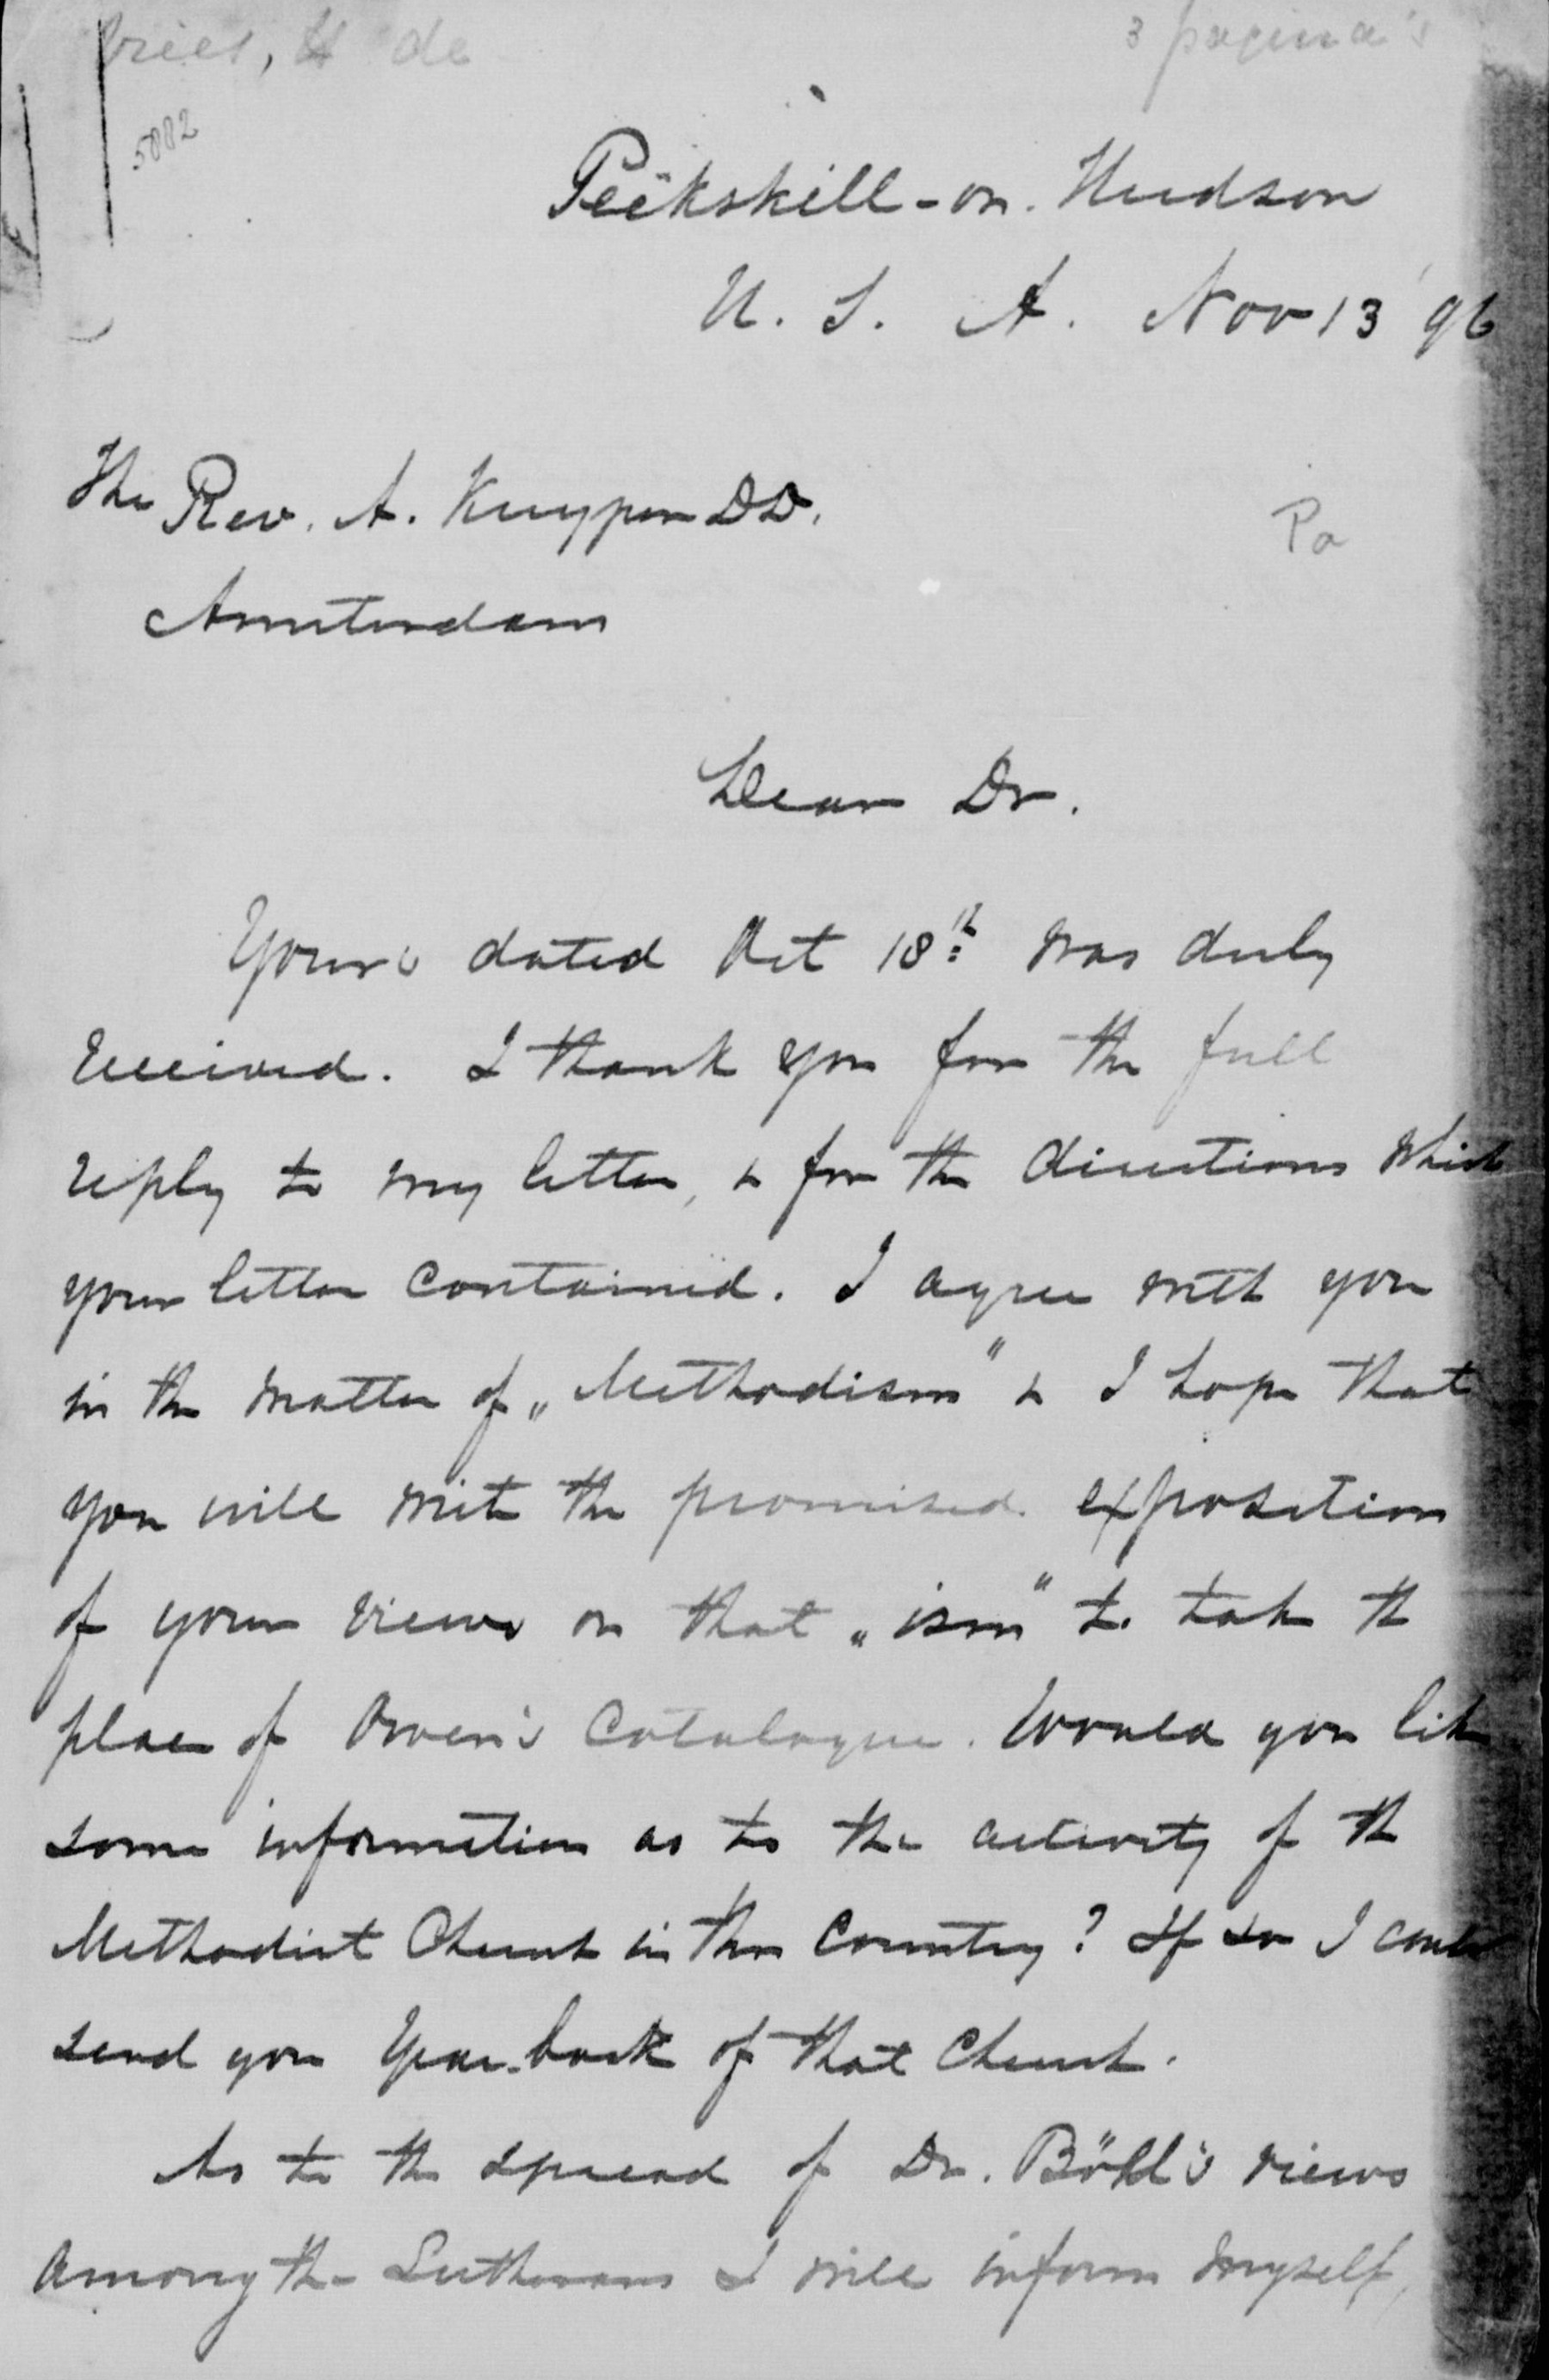 Vries, H de
3 pagina's
5882
Peekskill-on. Hudson
U. S. A. Nov 13 '96
The Rev. A. Kuyper DD.
Pa
Amsterdam
Dear Dr.
Yours dated Oct 18th was duly
received. I thank you for the full
reply to my letter, & for the directions which
your letter contained. I agree with you
in the matter of „Methodism" & I hope that
you will write the promised exposition
of your views on that „ism" to take the
place of Owen's Catalogue. Would you like
some information as to the activity of the
Methodist Church in this Country? If so I could
send you Year-book of that Church.
As to the spread of Dr. Böhl's views
among the Lutherans I will inform myself,